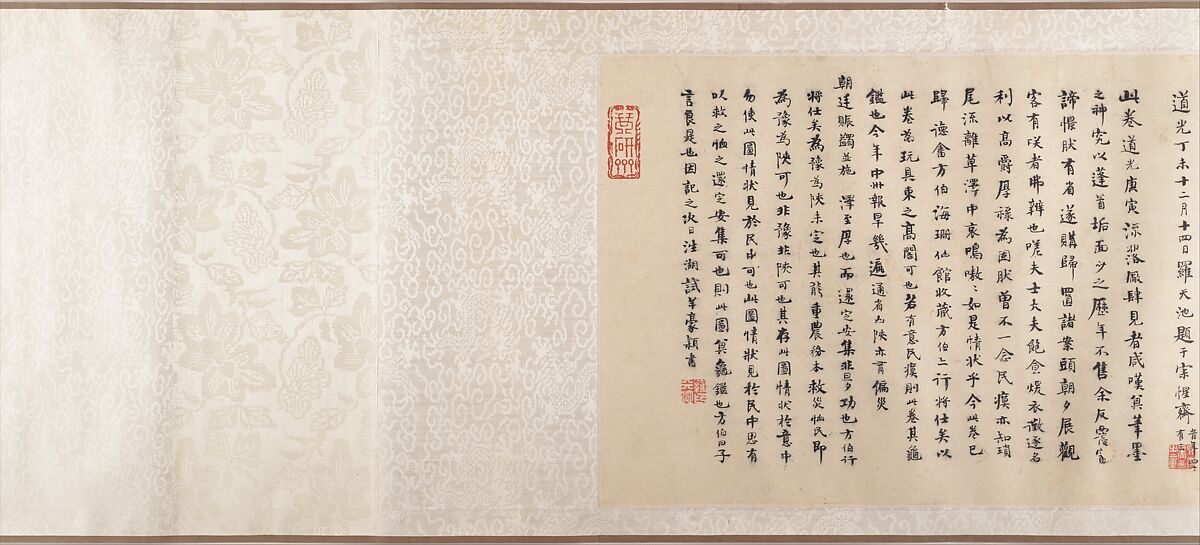 道光丁未十二月十四日羅天池題于宗惺齋
此卷道光庚寅流落廠肆見者咸嘆其筆墨
之神究以蓬首垢面少之歷年不售余反覆審
諦慢肰有省遂購歸置諸案頭朝夕展觀
客有咲者弗辨也嗟夫士大夫飽食煖衣徵逐名
利以高爵厚祿為固肰曾不一念民瘼亦知瑣
尾流離草澤中哀鳴嗷〻如是情狀乎今此卷已
歸德畬方伯海珊仙館收藏方伯亦行將仕矣以
此卷為玩具束之高閣可也若有意民瘼則此卷其龜
鑑也今年中州報旱幾遍通省山陝亦有偏災
朝廷賑蠲並施 澤至厚也而還定安集非旦夕功也方伯行
將仕矣為豫為陝未定也其能重農務本救災恤民即
為豫為陝可也非豫非陝可也其存此圖情狀於意中
勿使此圖情狀見於民中可也此圖情狀見於民中思有
以救之恤之還定安集可也則此圖其龜鑑也方伯曰子
言良是也因記之次日注湖試羊豪穎書